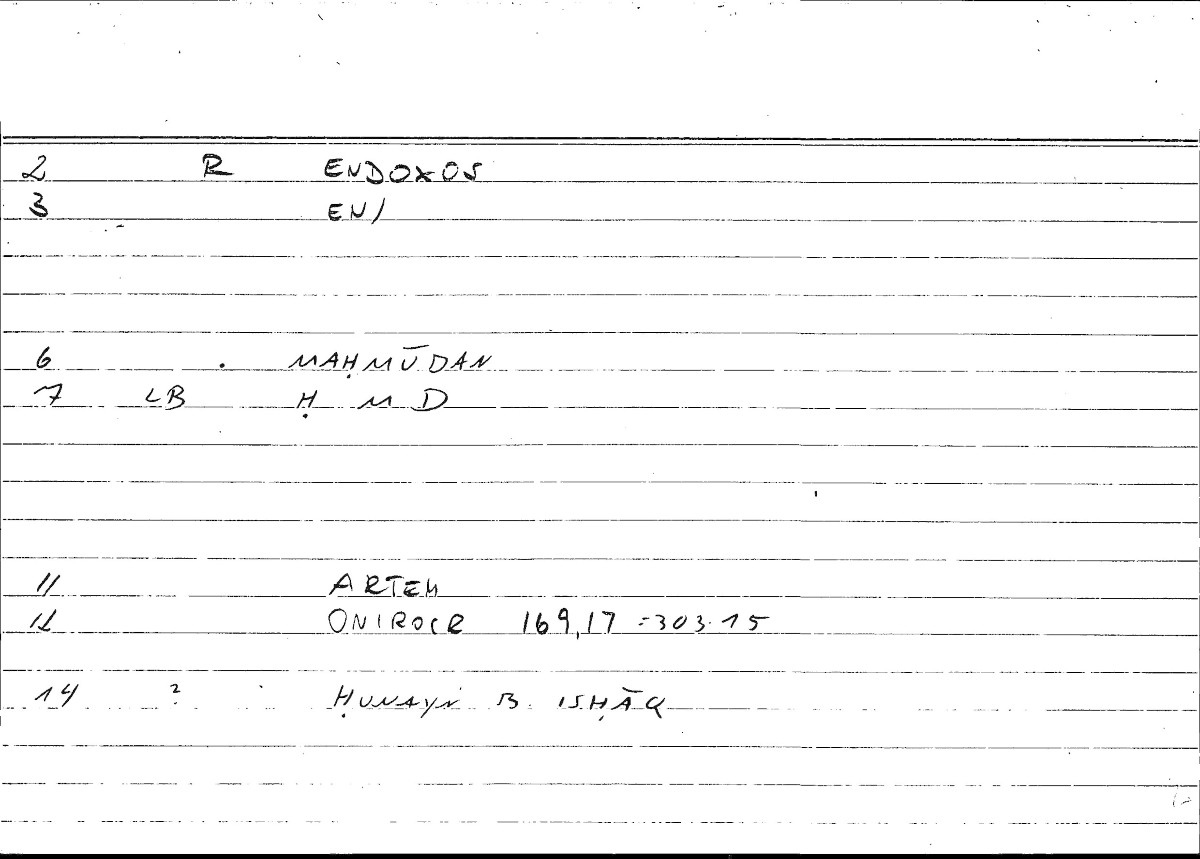 2 R ENDOXOS
3 EN/
6 . MAḤMŪDAN
7 LB Ḥ M D
11 ARTEM
12 ONIROCR 169,17 = 303.15
14 ? ḤUNAYN B. ISḤĀQ